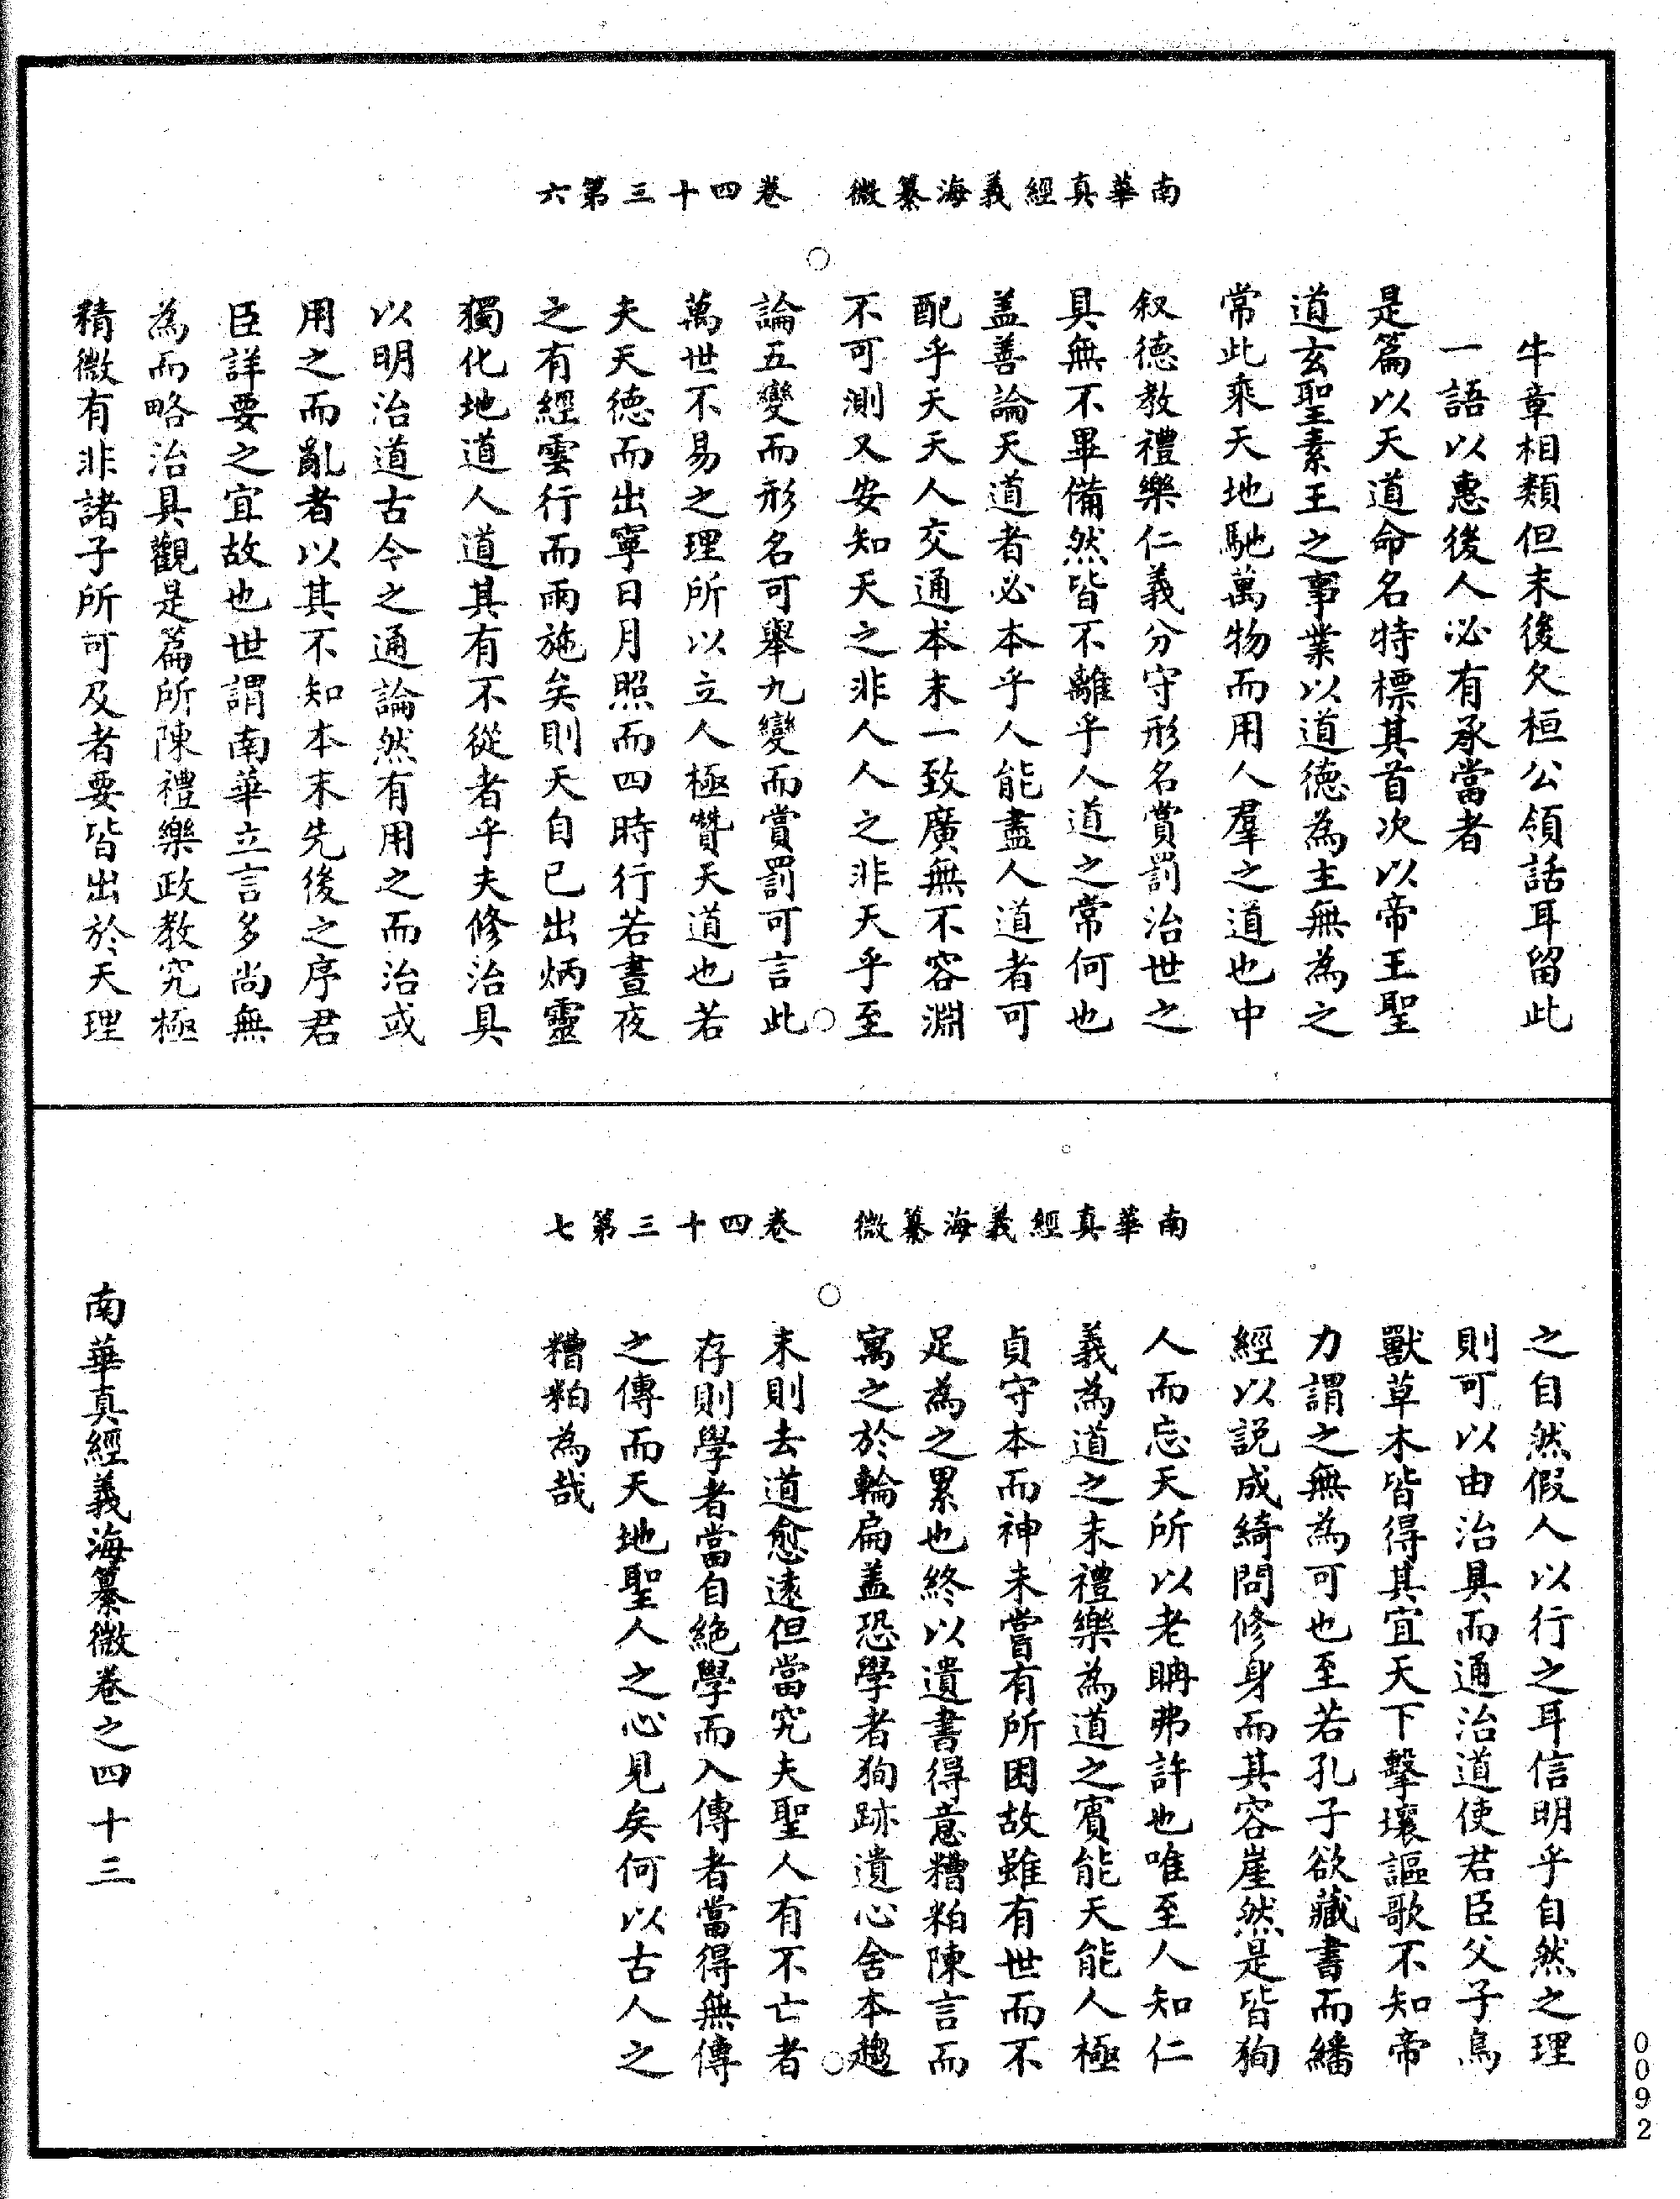 南華真經義海纂微　卷四十三第六
牛章相類但末後欠桓公領話耳留此
一語以惠後人必有承當者
是篇以天道命名特標其首次以帝王聖
道玄聖素王之事業以道德為主無為之
常此乘天地馳萬物而用人羣之道也中
叙德教禮樂仁義分守形名賞罰治世之
具無不畢備然皆不離乎人道之常何也
盖善論天道者必本乎人能盡人道者可
配乎天天人交通本末一致廣無不容淵
不可測又安知天之非人人之非天乎至
論五變而形名可舉九變而賞罰可言此
萬世不易之理所以立人極贊天道也若
夫天德而出寧日月照而四時行若晝夜
之有經雲行而雨施矣則天自已出炳靈
獨化地道人道其有不從者乎夫修治具
以明治道古今之通論然有用之而治或
用之而亂者以其不知本末先後之序君
臣詳要之宜故也世謂南華立言多尚無
為而略治具觀是篇所陳禮樂政教究極
精微有非諸子所可及者要皆出於天理
南華真經義海纂微　卷四十三第七
之自然假人以行之耳信明乎自然之理
則可以由治具而通治道使君臣父子鳥
獸草木皆得其宜天下擊壤謳歌不知帝
力謂之無為可也至若孔子欲藏書而繙
經以説成綺問修身而其容崖然是皆狥
人而忘天所以老聃弗許也唯至人知仁
義為道之末禮樂為道之賓能天能人極
貞守本而神未嘗有所困故雖有世而不
足為之累也終以遺書得意糟粕陳言而
寓之於輪扁盖恐學者狥跡遺心舍本趨
末則去道愈遠但當究夫聖人有不亡者
存則學者當自絶學而入傳者當得無傳
之傳而天地聖人之心見矣何以古人之
糟粕為哉
南華真經義海纂微卷之四十三
0092